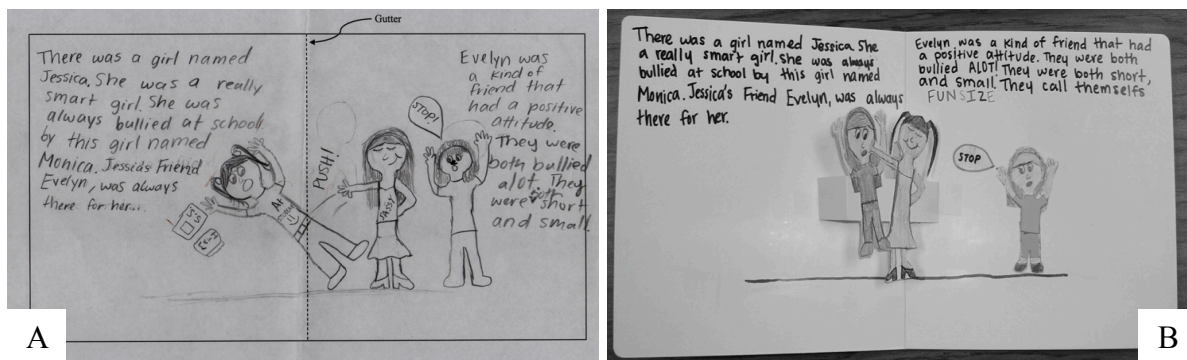 Gutter
There was a girl named
Jessica. She was a really
smart girl. She was
always bullied at school
by this girl named
Monica. Jessica's Friend
Evelyn, was always
there for her...
PUSH!
SASSY
STOP!
Evelyn was
a kind of
friend that
had a positive
attitude.
They were
both bullied
alot. They
were both short
and small.
A
There was a girl named Jessica. She
a really smart girl. she was always
bullied at school by this girl named
Monica. Jessica's Friend Evelyn, was always
there for her.
Evelyn was a kind of friend that had
a positive attitude. They were both
bullied ALOT! They were both short,
and small. They call themselves
FUNSIZE
STOP
B